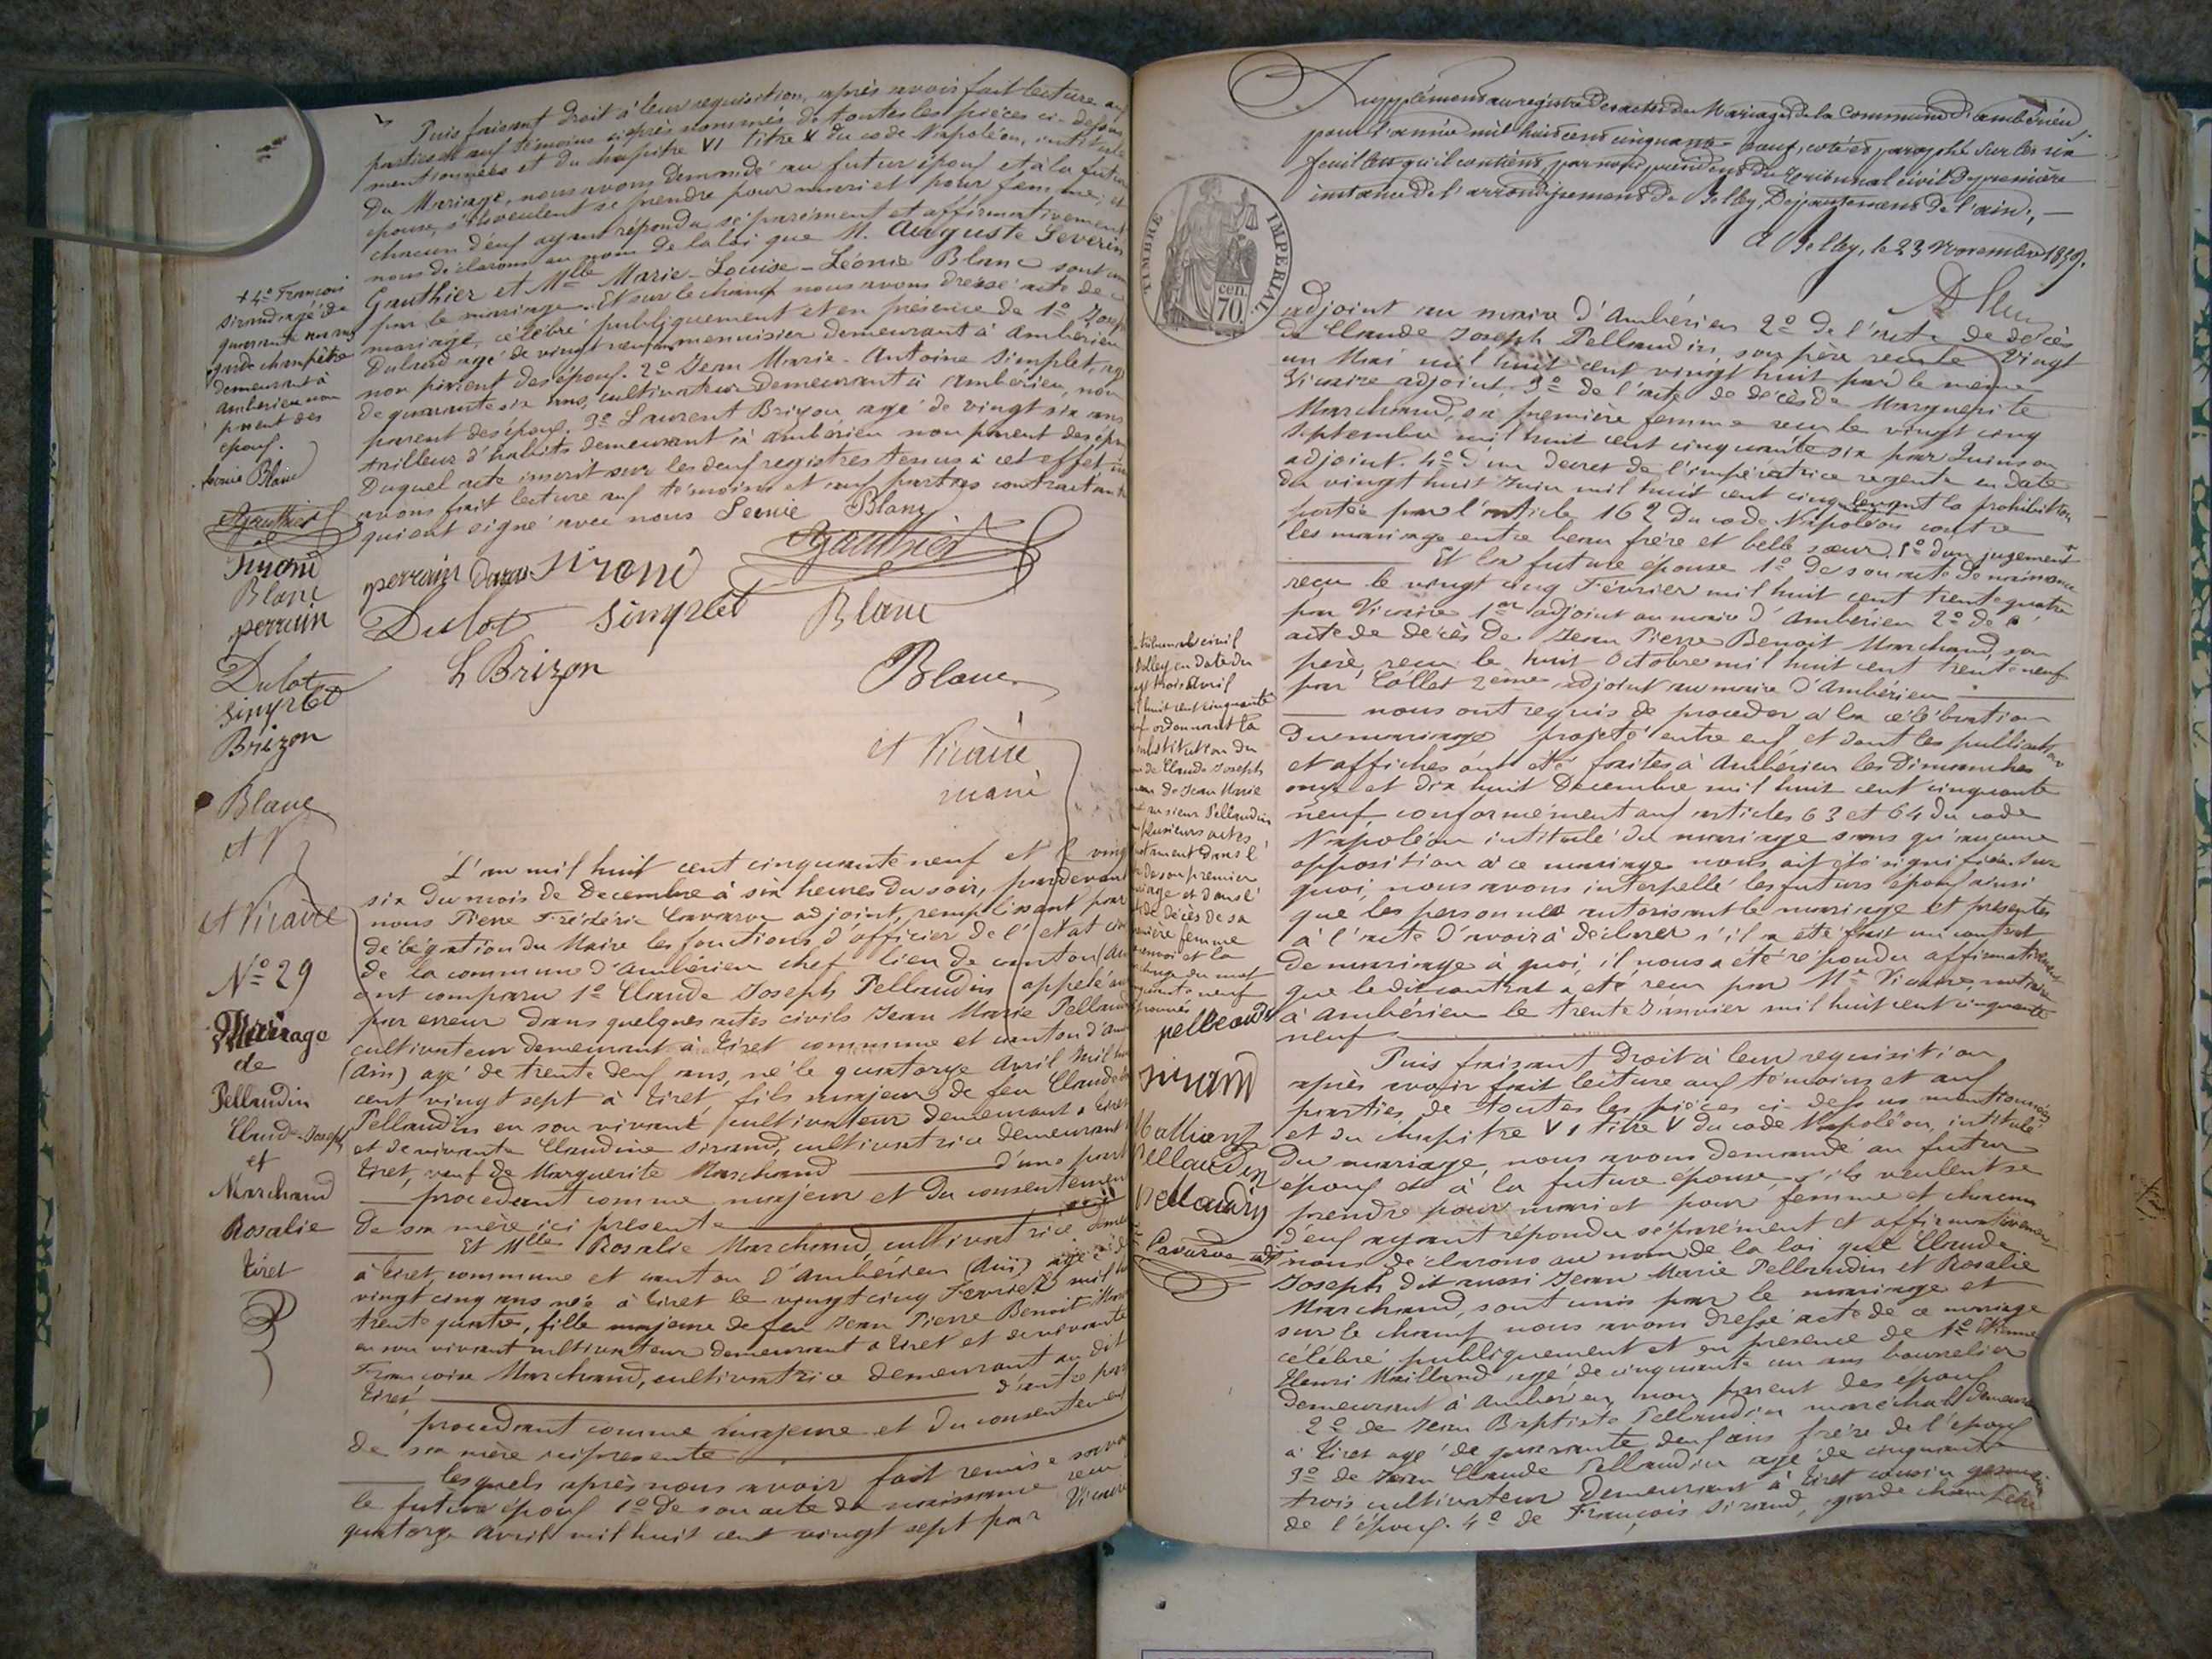 Puis faisant droit à leur requisition, après avoir fait lecture aux
parties et aux témoins ciaprès nommés de toutes les pièces ci-dessus
mentionnées et du chapitre VI titre V du code Napoléon, intitulé
Du Mariage, nous avons demandé au futur époux et à la future
épouse, s'ils veulent se prendre pour mari et pour femme, et
chacun d'eux ayant répondu séparément et affirmativement
nous déclarons au nom de la loi que M. Auguste Severin
Gauthier et Mlle Marie-Louise-Léonie Blanc sont unis
par le mariage. Et sur le champ nous avons dressé acte de ce
mariage, célébré publiquement et en présence de 1º Joseph
Dulud agé de vingt neuf ans menuisier demeurant à Ambérieu
non parent des époux. 2º Jean Marie-Antoine Simplet, agé
de quarante six ans, cultivateur demeurant à Ambérieu, non
parent des époux. 3º Laurent Brizon, agé de vingt six ans
tailleur d'habits demeurant à Ambérieu non parent des époux
Duquel acte inscrit sur les deux registres tenus à cet effet nous
avons fait lecture aux témoins et aux parties contractantes
qui ont signé avec nous Léonie Blanc
AGauthier
perrain Sirand
Dulot Simplet Blanc
L Brizon Blanc
et Vicaire
maire
+ 4º François
Sirand agé de
quarante neuf ans
garde champêtre
demeurant à
Ambérieu non
parent des
époux.
Léonie Blanc
AGauthier
Sirand
Blanc
perrain
Dulot
Simplet
Brizon
Blanc
et Vicaire
Nº 29
Mariage
de
Pellaudin
Claude-Joseph
et
Marchand
Rosalie
Tiret
L'an mil huit cent cinquante neuf et le vingt
six du mois de Decembre à six heures du soir, pardevant
nous Pierre Frédéric Cavarva adjoint, remplissant par
délégation du Maire les fonctions d'officier de l'état civil
de la commune d'Ambérieu chef lieu de canton (Ain)
ont comparu 1º Claude Joseph Pellaudin (appelé aussi
par erreur dans quelques actes civils Jean Marie Pellaudin
cultivateur demeurant à Tiret commune et canton d'Ambérieu
(Ain) agé de trente deux ans, né le quatorze Avril Mil huit
cent vingt sept à Tiret, fils majeur de feu Claude
Pellaudin en son vivant cultivateur demeurant à Tiret
et de vivante Claudine Sirand, cultivatrice demeurant
Tiret, veuf de Marguerite Marchand d'une part
procedant comme majeur et du consentement
de sa mère ici présente
Et Mlle Rosalie Marchand, cultivatrice
à Tiret commune et canton d'Ambérieu (Ain) agée de
vingt cinq ans née à Tiret le vingt cinq Fevrier mil huit
trente quatre, fille majeure de feu Jean Pierre Benoit
en son vivant cultivateur demeurant à Tiret et de vivante
Françoise Marchand, cultivatrice demeurant au dit
Tiret d'autre part
procedant comme majeure et du consentement
de sa mère ici présente
lesquels après nous avoir fait remise savoir
le futur époux 1º de son acte de naissance reçu
quatorze Avril mil huit cent vingt sept par Vicaire
Supplément au registre des actes du Mariage de la Commune d'ambérieu,
pour l'année mil huit cent cinquante neuf, coté et paraphé sur les six
feuilles qu'il contient, par nous président du tribunal civil de première
instance de l'arrondissement de Belley, Département de l'ain.
A Belley, le 23 Novembre 1859.
TIMBRE IMPERIAL
70 cen.
adjoint au maire d'Ambérieu 2º de l'acte de décès
de Claude Joseph Pellaudin, son père reçu le vingt
un Mai mil huit cent vingt huit par le même
Vicaire adjoint, 3º de l'acte de décès de Marguerite
Marchand, sa première femme reçu le vingt cinq
Septembre mil huit cent cinquante six par Quinson
adjoint. 4º d'un décret de l'impératrice regente en date
du vingt huit Juin mil huit cent cinq levant la prohibition
portée par l'article 162 du code Napoléon contre
les mariage entre beau frère et belle sœur. 5º d'un jugement
Et la future épouse 1º de son acte de naissance
reçu le vingt cinq Février mil huit cent trente quatre
par Vicaire 1er adjoint au maire d'Ambérieu 2º de l'
acte de décès de Jean Pierre Benoit Marchand, son
père, reçu le huit Octobre mil huit cent trente neuf
par Collet 2ème adjoint au maire d'Ambérieu
nous ont requis de procéder à la célébration
du mariage projeté entre eux et dont les publications
et affiches ont été faites à Ambérieu les Dimanches
onze et dix huit Decembre mil huit cent cinquante
neuf conformément aux articles 63 et 64 du code
Napoléon intitulé du mariage sans qu'aucune
opposition à ce mariage nous ait été signifiée. Sur
quoi, nous avons interpellé les futurs époux ainsi
que les personnes autorisant le mariage et présentes
à l'acte d'avoir à déclarer s'il a été fait un contrat
de mariage à quoi, il nous a été répondu affirmativement
que le dit contrat a été reçu par Me Vicaire, notaire
à Ambérieu le trente Janvier mil huit cent cinquante
neuf
Puis faisant droit à leur requisition
après avoir fait lecture aux témoins et aux
parties de toutes les pièces ci-dessus mentionnées
et du chapitre VI titre V du code Napoléon, intitulé
Du mariage, nous avons demandé au futur
époux et à la future épouse s'ils veulent se
prendre pour mari et pour femme et chacun
d'eux ayant répondu séparément et affirmativement
nous déclarons au nom de la loi que Claude
Joseph dit aussi Jean Marie Pellaudin et Rosalie
Marchand, sont unis par le mariage et
sur le champ nous avons dressé acte de ce mariage
célébré publiquement et en présence de 1º Etienne
Henri Mailland agé de cinquante un ans bourrelier
demeurant à Ambérieu, non parent des époux
2º de Jean Baptiste Pellaudin maréchal demeurant
à Tiret agé de quarante deux ans frère de l'époux
3º de Jean Claude Pellaudin agé de cinquante
trois cultivateur demeurant à Tiret cousin germain
de l'époux. 4º de François Sirand, garde champêtre
tribunal civil
Belley en date du
vingt trois Avril
mil huit cent cinquante
neuf ordonnant la
substitution du
nom de Claude Joseph
celui de Jean Marie
au sieur Pellaudin
plusieurs actes
notament dans l'
acte de son premier
mariage et dans l'
acte de décès de sa
première femme
renvoi et la
du mot
cinquante neuf
approuvés
pellaudin
Sirand
Mailland
Pellaudin
Pellaudin
Cavarva adt